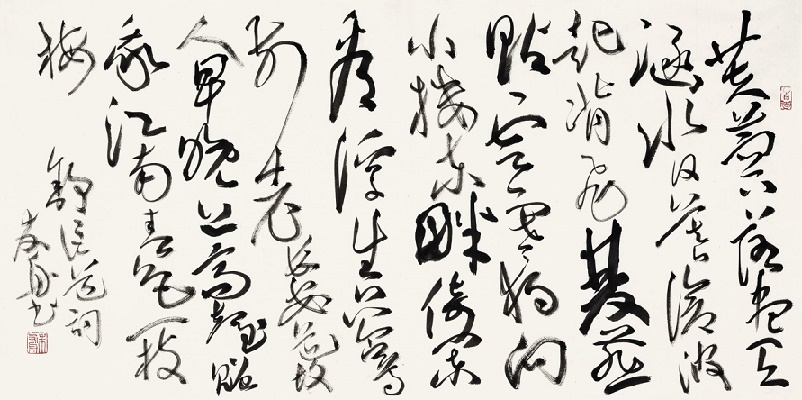 芙蓉落尽天
涵水日暮沧波
起背飞双燕
贴云寒独向
小楼东畔倚阑
看浮生只合尊
前老长安道故
人早晚上高台赠
我江南春色一枝
梅
舒信道词
友舟书